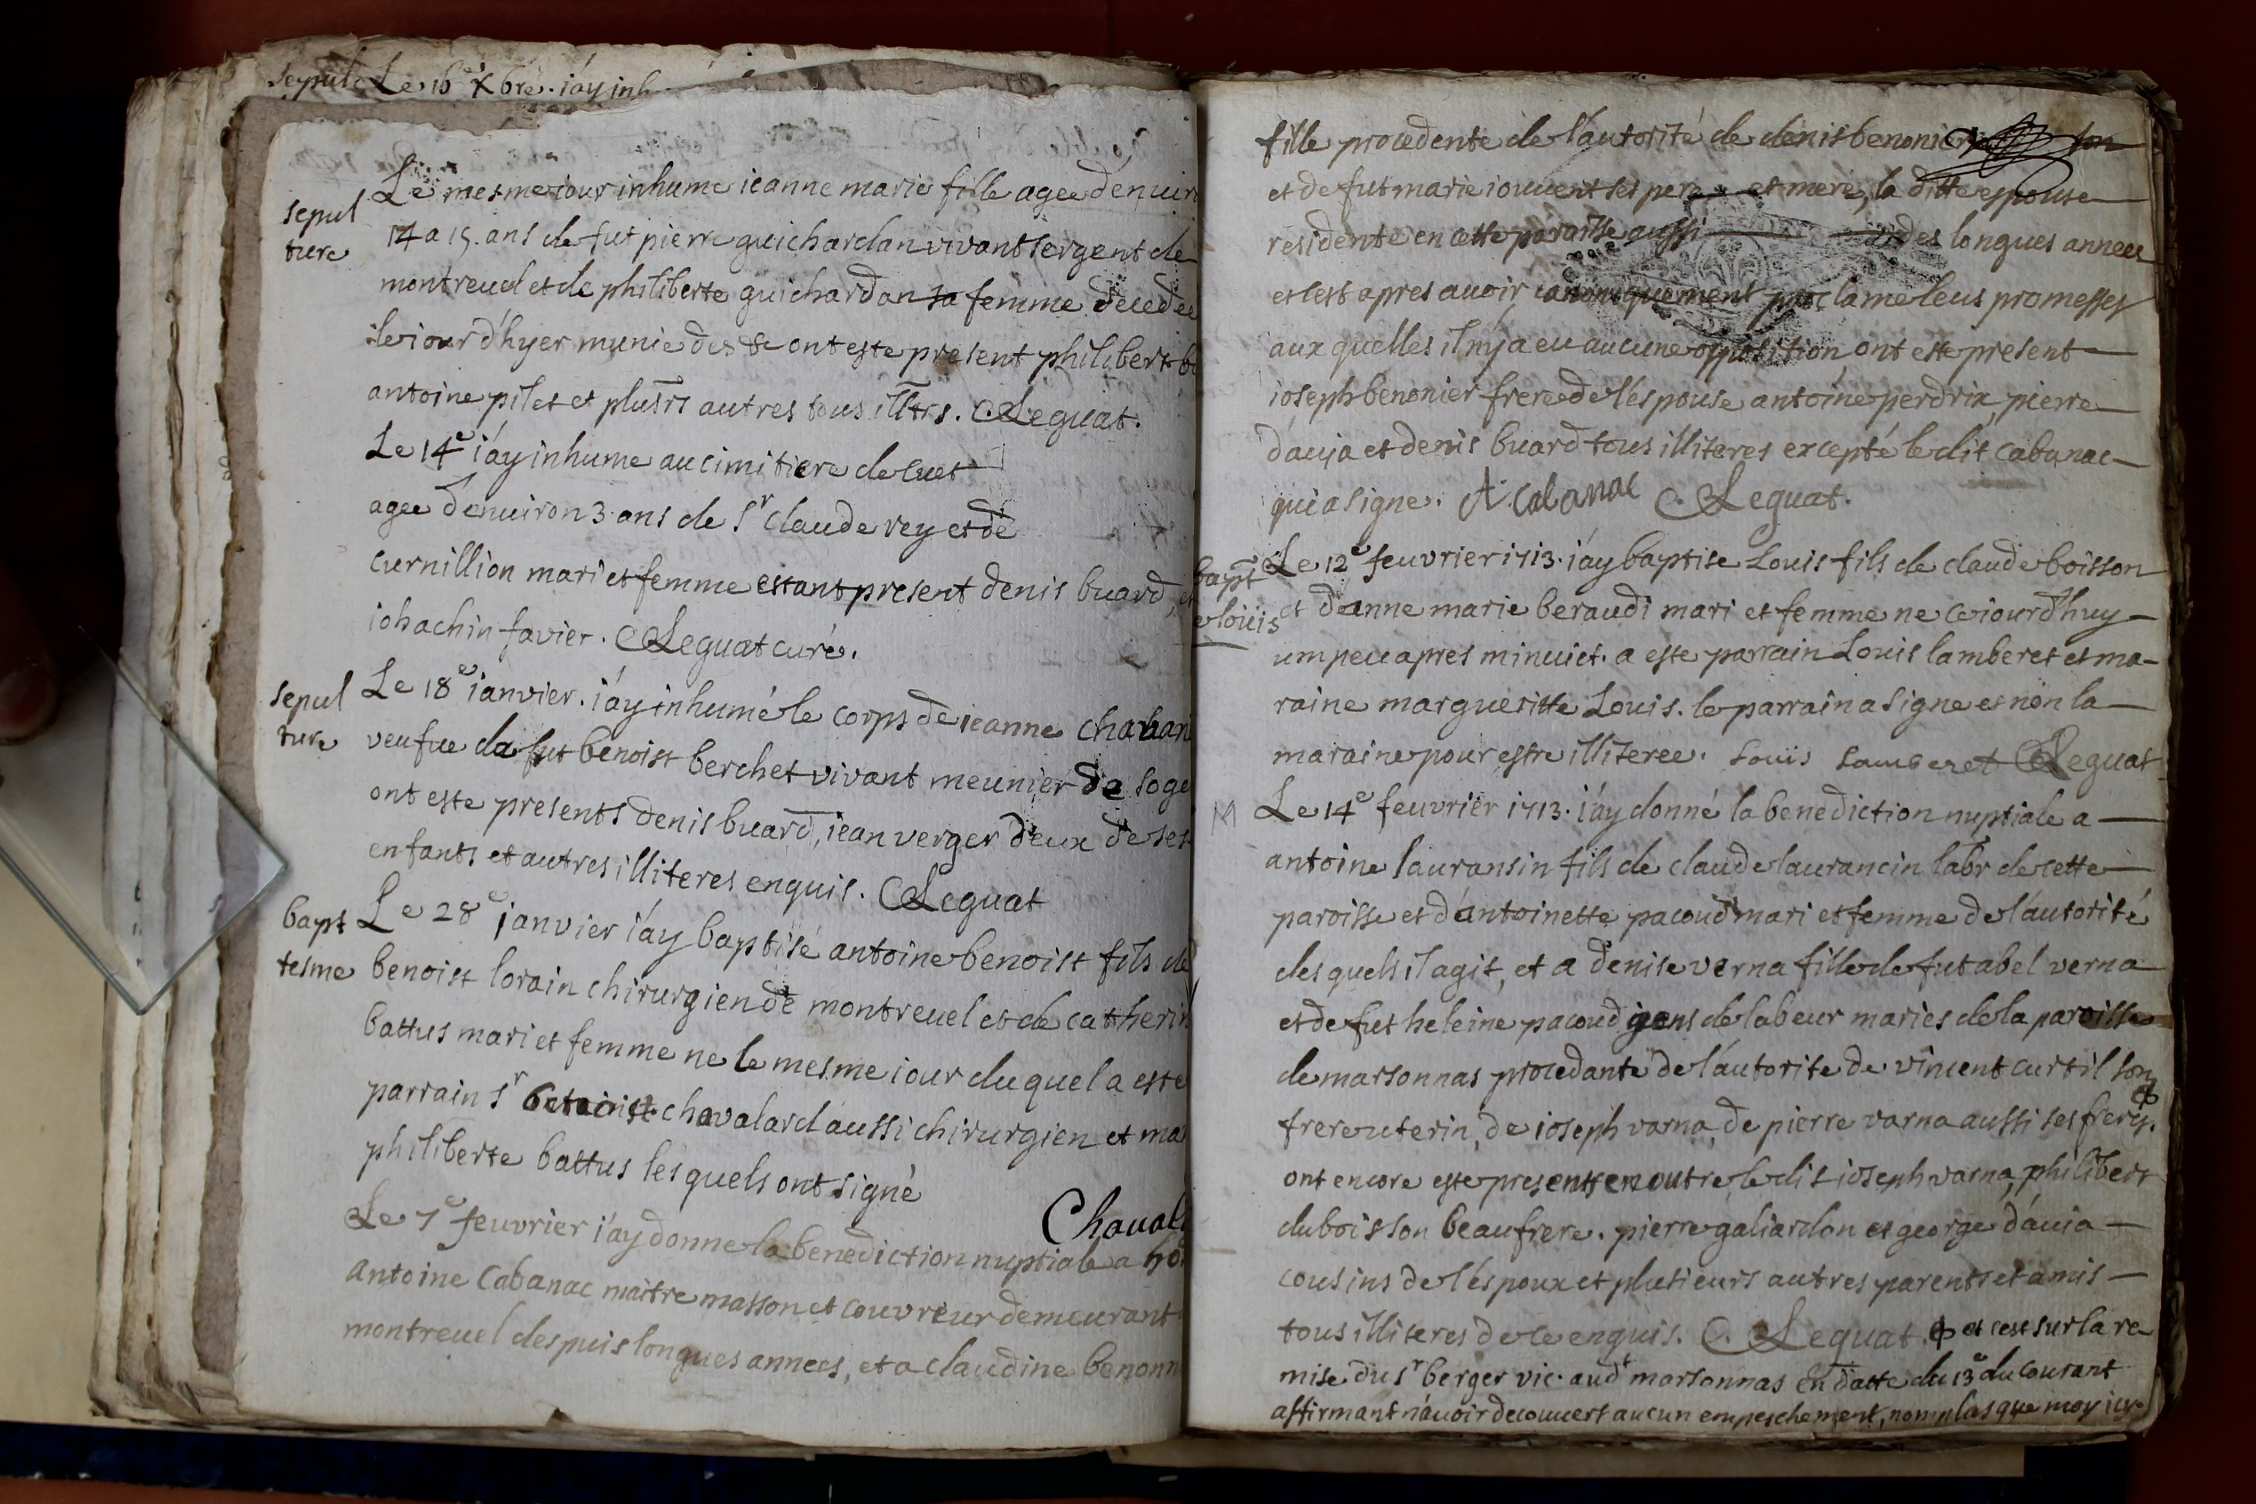 sepult Le 16e Xbre. i'ay inh
Le mesme iour inhume ieanne marie fille agee d'enuir
sepul
ture
14 a 15. ans de fut pierre guichardan vivant sergent de
montreuel et de philiberte guichardan sa femme decedee
le iour d'hyer munie des &c ont este present philibert b
antoine pilet et plusrs autres tous illtrs. CLeguat.
Le 14e i'ay inhume au cimitiere de cuet
agee d'enuiron 3 ans de Sr claude rey et de
curnillion mari et femme estant present denis buard, et
iohachin favier. CLeguat curé.
sepul
ture
Le 18e ianvier. i'ay inhumé le corps de ieanne chaban
veufue de fut benoist berchet vivant meunier de soge
ont este presents denis buard, iean verger deux de ses
enfants et autres illiteres enquis. CLeguat
bapt
tesme
Le 28e ianvier i'ay baptisé antoine benoist fils de
benoist lorain chirurgien de montreuel et de catherin
battus mari et femme ne le mesme iour duquel a este
parrain Sr chavalard aussi chirurgien et ma
philiberte battus lesquels ont signé
Chaval
Le 7e feuvrier i'ay donne la benediction nuptiale a ho
antoine Cabanac maitre masson et couvreur demeurant
montreuel despuis longues annees, et a claudine benonn
fille procedente de l'autorité de denis benonier son
et de fut marie iouuent ses pere et mere, la ditte espouse
residente en cette paroisse aussi des longues annees
et c'est apres auoir canoniquement proclame leus promesses
aux quelles il n'y a eu aucune opposition ont este present
ioseph benonier frere de l'espouse antoine perdrix, pierre
d'auia et denis buard tous illiteres excepté le dit cabanac
qui a signe. A. cabanac C. Leguat.
bapt
e louis
Le 12e feuvrier 1713. i'ay baptise Louis fils de claude boisson
et d'anne marie beraudi mari et femme ne ce iourd'huy
um peu apres minuict. a este parrain Louis lamberet et ma-
raine margueritte Louis. le parrain a signe et non la
maraine pour estre illiteree. Louis Lamberet CLeguat
M Le 14e feuvrier 1713. i'ay donné la benediction nuptiale a
antoine lauransin fils de claude laurancin labr de cette
paroisse et d'antoinette pacoud mari et femme de l'autorité
des quels il agit, et a denise verna fille de fut abel verna
et de fut heleine pacoud gens de labeur maries de la paroisse
de marsonnas procedante de l'autorite de vincent curtil son
frere uterin, de ioseph varna, de pierre varna aussi ses freres. ф
ont encore este presents en outre le dit ioseph varna, philibert
duboisson beaufrere. pierre galiardon et george d'auia
cousins de l'espoux et plusieurs autres parents et amis
tous illiteres de ce enquis. C. Leguat. ф et c'est sur la re
mise du Sr berger vic. aud marsonnas en datte du 13e du courant
affirmant n'auoir decouuert aucun empeschement, nom plus que moy icy